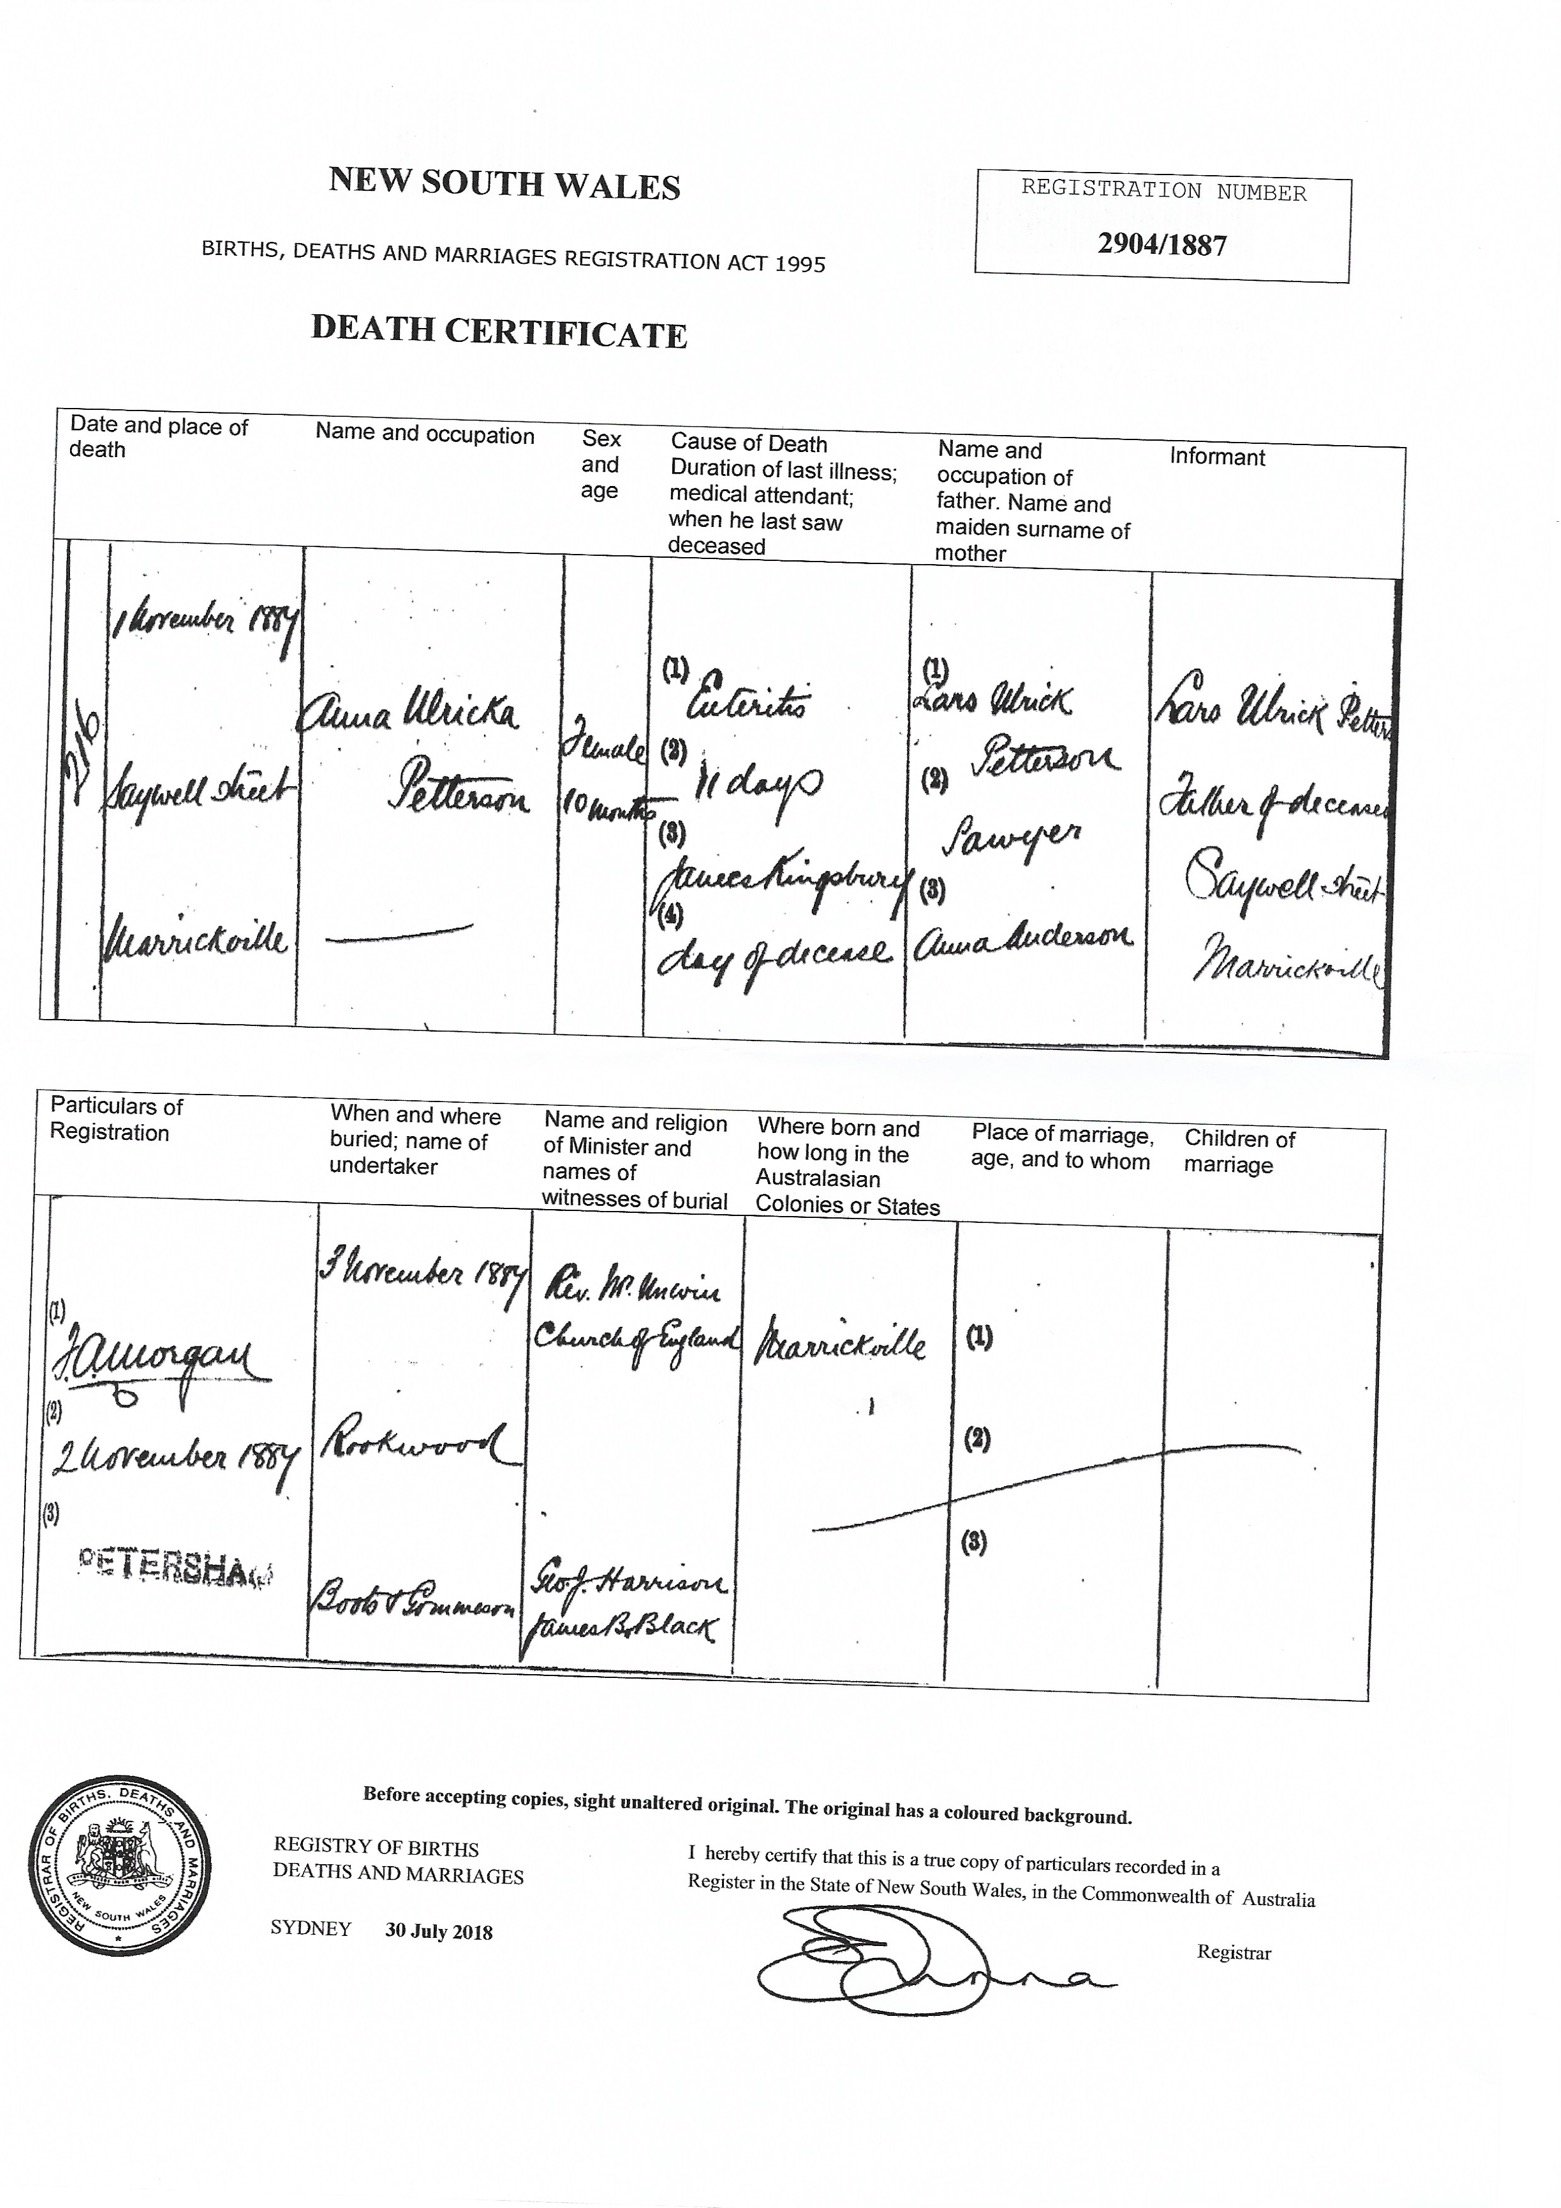 NEW SOUTH WALES
REGISTRATION NUMBER
2904/1887
BIRTHS, DEATHS AND MARRIAGES REGISTRATION ACT 1995
DEATH CERTIFICATE
Date and place of
death
Name and occupation
Sex
and
age
Cause of Death
Duration of last illness;
medical attendant;
when he last saw
deceased
Name and
occupation of
father. Name and
maiden surname of
mother
Informant
216
1 November 1887
Saywell street
Marrickville
Anna Ulricka
Petterson
Female
10 months
(1)
Enteritis
(2)
11 days
(3)
James Kingsbury
(4)
day of decease
(1)
Lars Ulrick
Petterson
(2)
Sawyer
(3)
Anna Anderson
Lars Ulrick Petters
Father of deceased
Saywell street
Marrickville
Particulars of
Registration
When and where
buried; name of
undertaker
Name and religion
of Minister and
names of
witnesses of burial
Where born and
how long in the
Australasian
Colonies or States
Place of marriage,
age, and to whom
Children of
marriage
(1)
F.A. Morgan
(2)
2 November 1887
(3)
PETERSHAM
3 November 1887
Rookwood
Boots &
Rev. Mr. Unwin
Church of England
Geo. J. Harrison
James B. Black
Marrickville
(1)
(2)
(3)
REGISTRAR OF BIRTHS, DEATHS AND MARRIAGES
NEW SOUTH WALES
Before accepting copies, sight unaltered original. The original has a coloured background.
REGISTRY OF BIRTHS
DEATHS AND MARRIAGES
SYDNEY 30 July 2018
I hereby certify that this is a true copy of particulars recorded in a
Register in the State of New South Wales, in the Commonwealth of Australia
Registrar